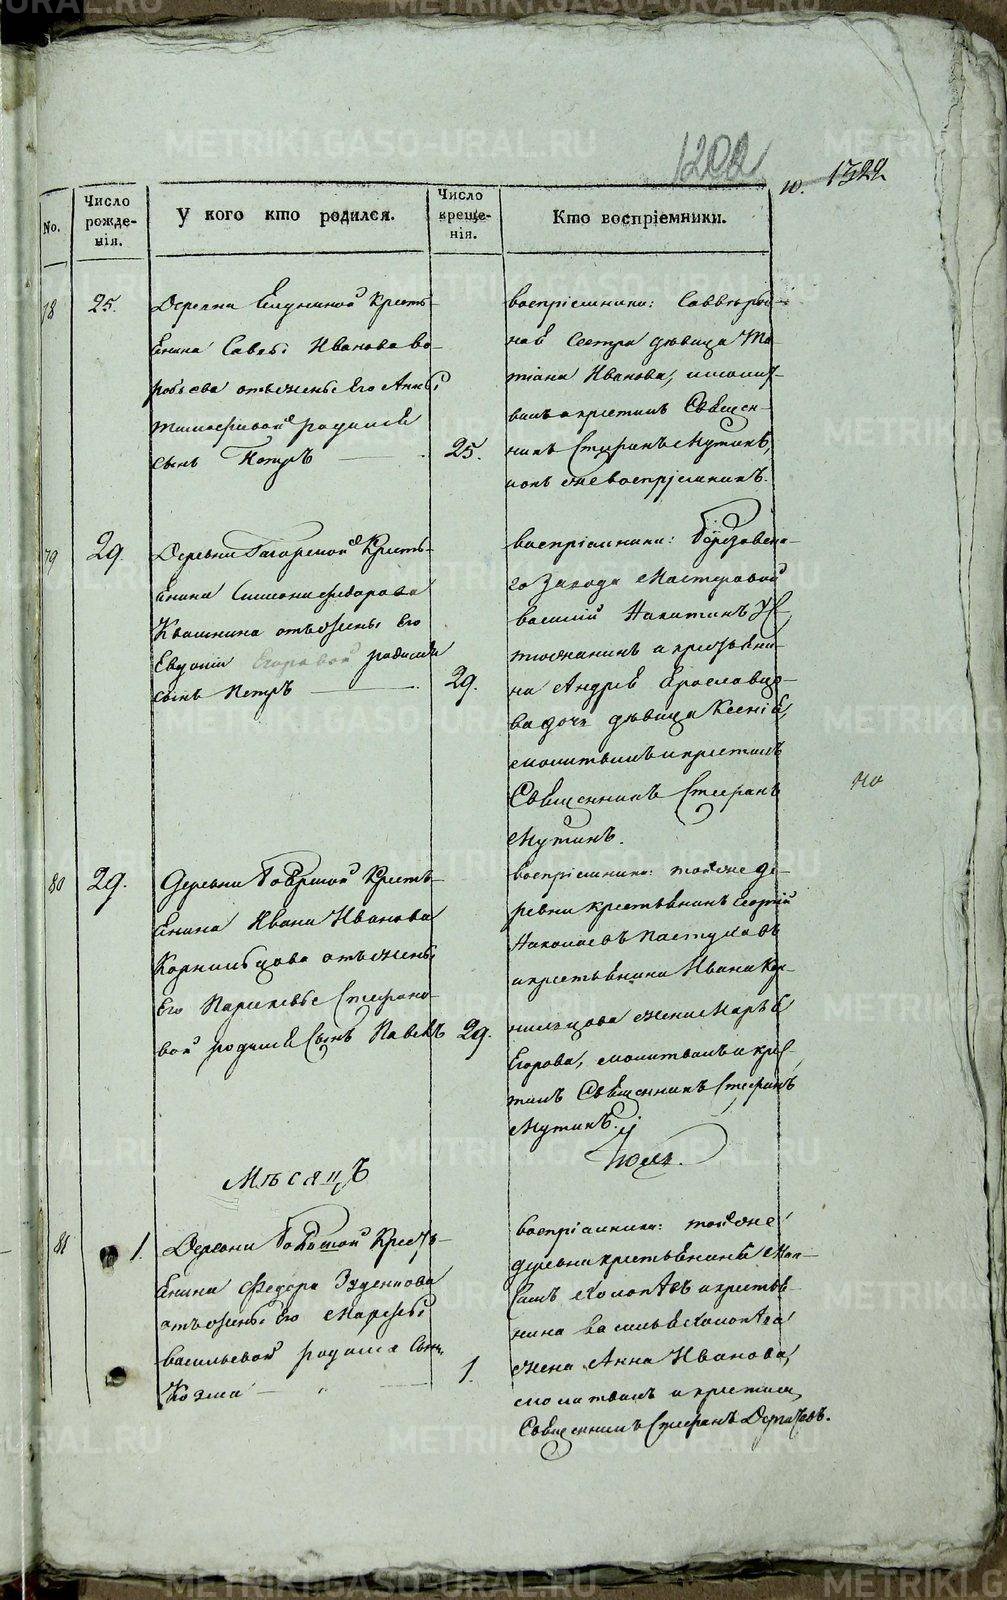 1202
ю. 1322
No.
Число рожде-нія.
У кого кто родился.
Число креще-нія.
Кто воспріемники.
78
25.
Деревни Елуниной Кресть-
янина Савы Иванова Во-
робьева отъ жены Его Анны
Тимофеевой родился
сынъ Петръ
25.
воспріемники:
на Сестра дѣвица Та-
тіана Иванова, молит-
вилъ и крестилъ Священ-
никъ Стефанъ Мутинъ,
онъ же воспріемникъ.
79
29.
Деревни Кресть-
янина Симеона Федорова
Квашнина отъ жены Его
Евдокіи Егоровой родился
сынъ Петръ
29.
воспріемники: Березовска-
го Завода Мастеровой
Василій Никитинъ Ус-
тюжанинъ и крестьяни-
на Андрея Ярославцо-
ва дочь дѣвица Ксенія,
молитвилъ и крестилъ
Священникъ Стефанъ
Мутинъ.
80
29.
Деревни Кресть-
янина Ивана Иванова
Корнильцова отъ жены
Его Парасковьи Стефано-
вой родился Сынъ Павелъ
29.
воспріемники: той же де-
ревни крестьянинъ Георгій
Николаевъ Пастуховъ
и крестьянина Ивана Кор-
нильцова жена Марья
Егорова, молитвилъ и крес-
тилъ Священникъ Стефанъ
Мутинъ.
Мѣсяцъ
Іюль.
81
1.
Деревни Кресть-
янина Федора
отъ жены Его Марфы
Васильевой родился Сынъ
Козма
1.
воспріемники: той же
деревни крестьянинъ Мак-
симъ и крестья-
нина Василья
жена Анна Иванова,
молитвилъ и крестилъ
Священникъ Стефанъ
METRIKI.GASO-URAL.RU